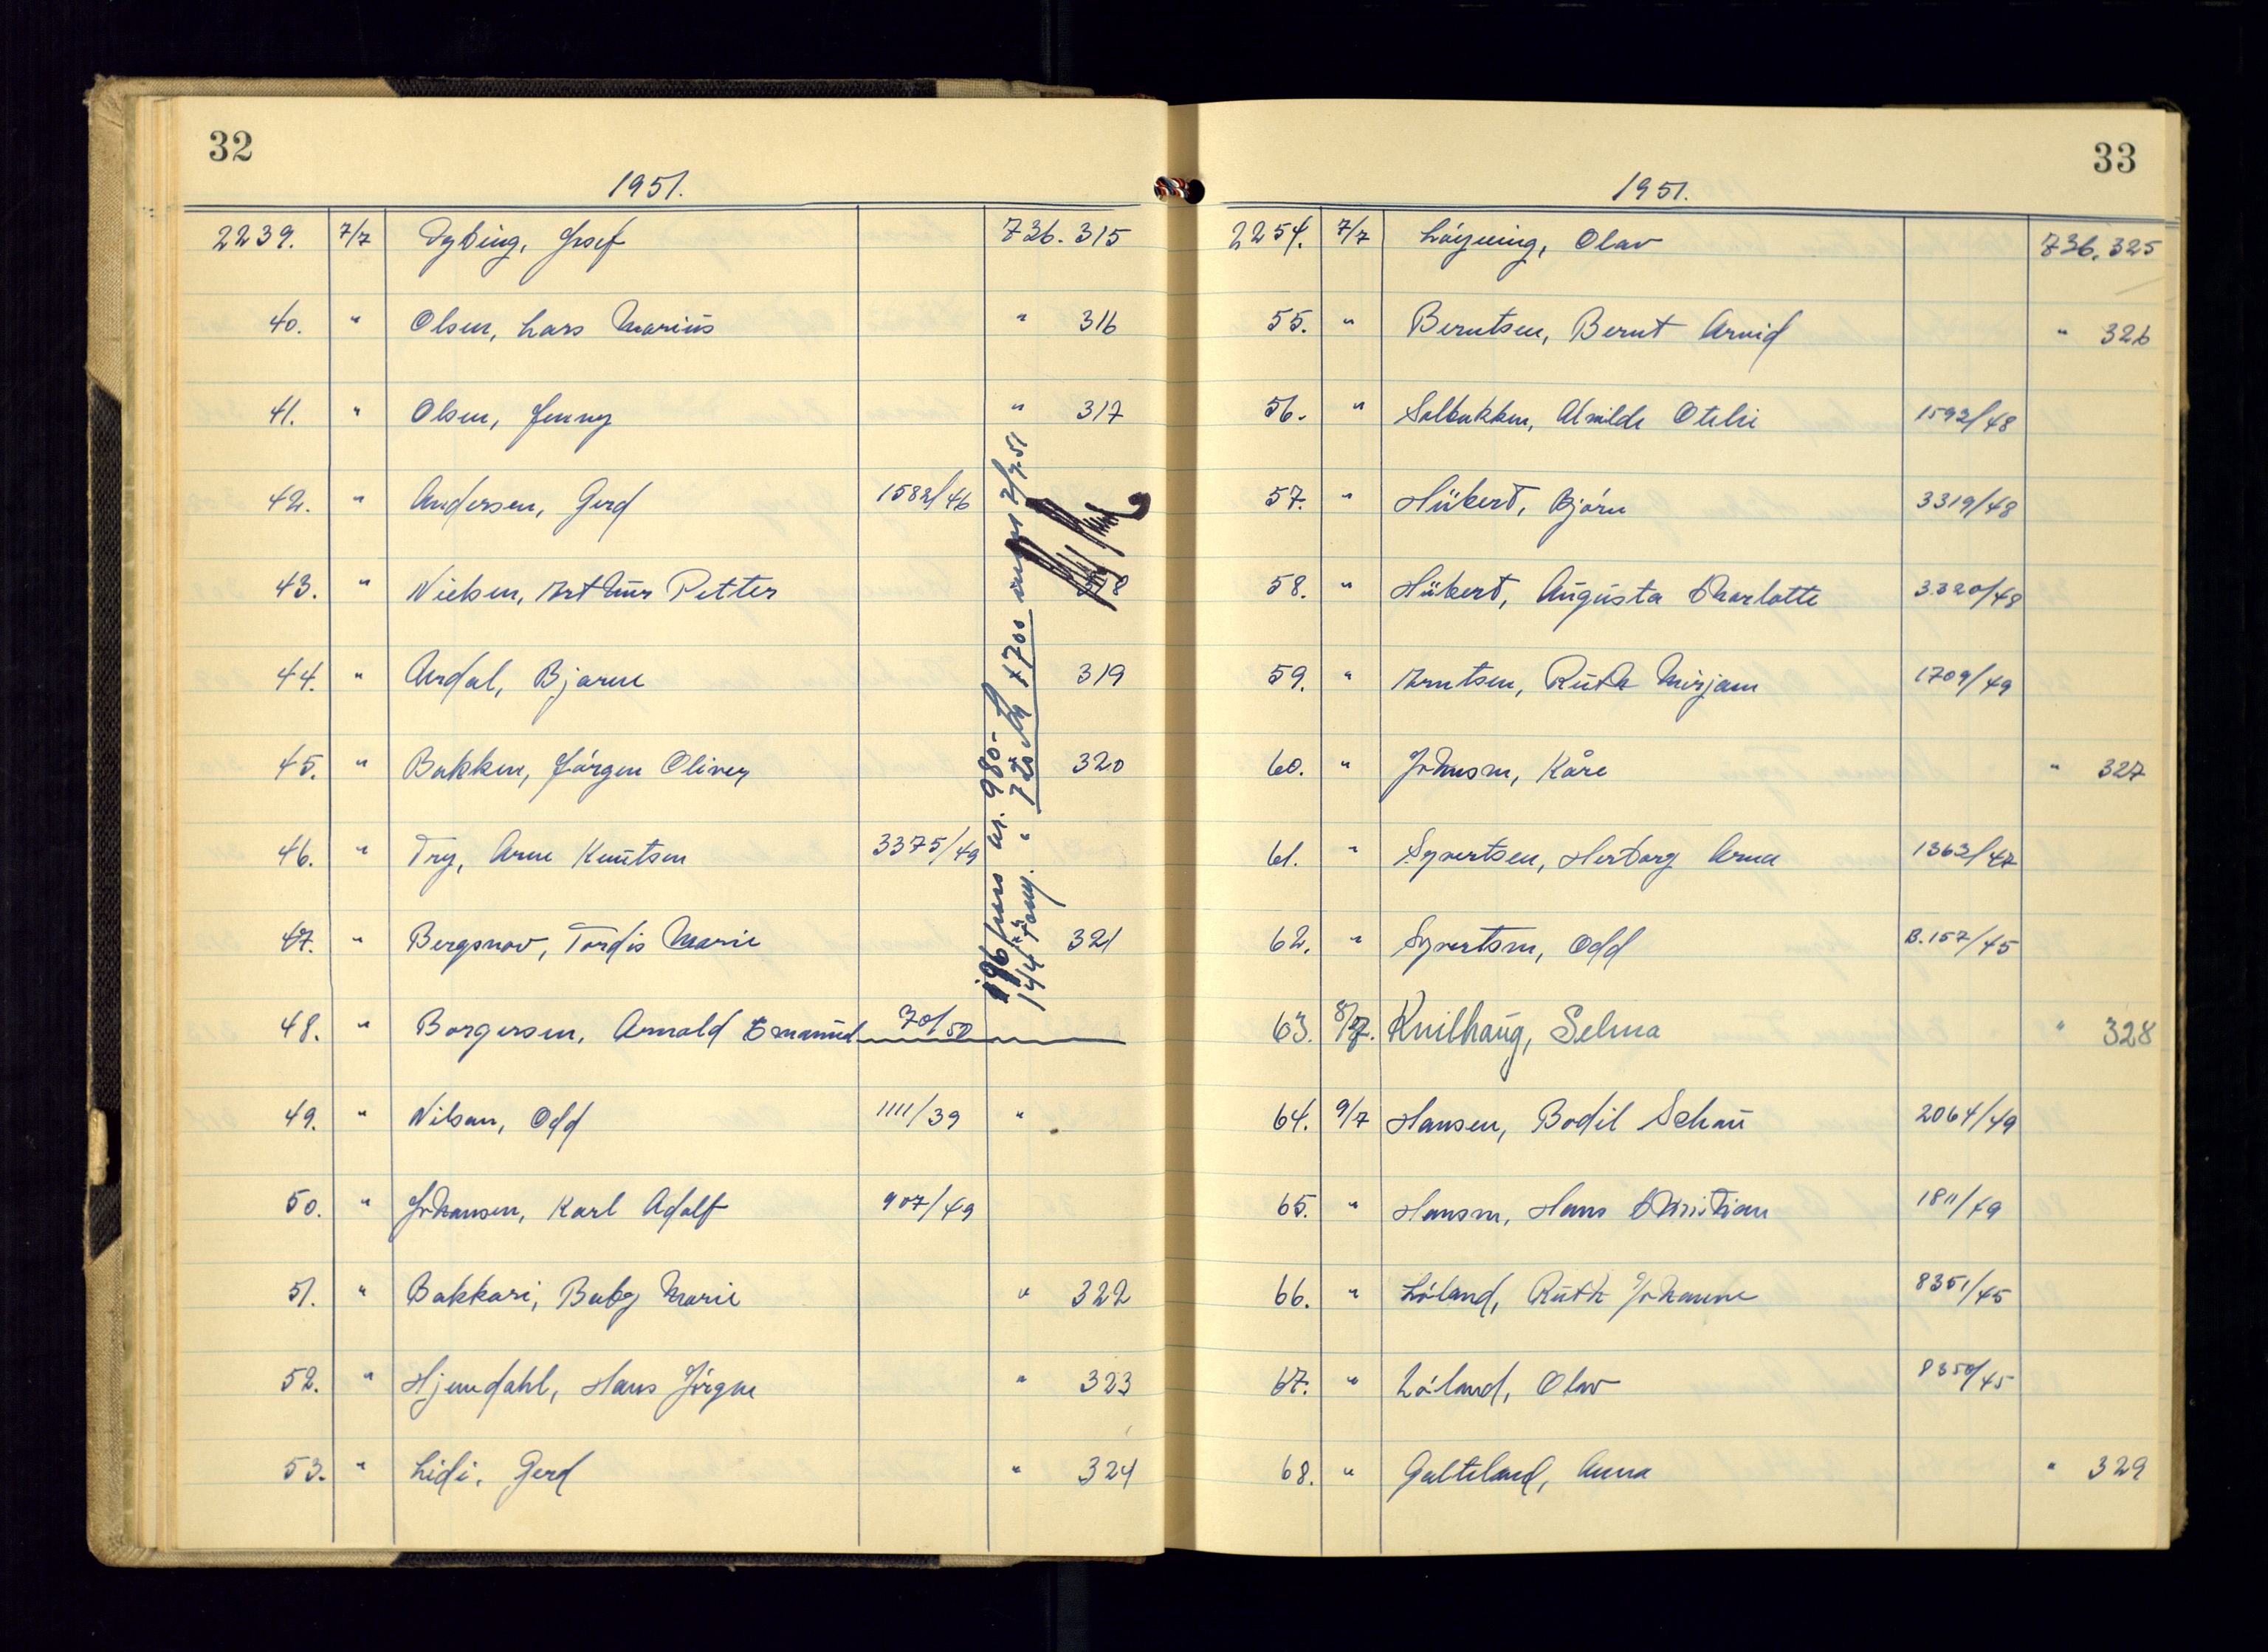 32
1951.
2239. 7/7 Dybing, Josef 736.315
40. " Olsen, Lars Marius " 316
41. " Olsen, Jenny " 317
42. " Andersen, Gerd 1582/46
43. " Nielsen, Arthur Petter 318
44. " Aardal, Bjarne 319
45. " Bakken, Jörgen Oliver 320
46. " Try, Arne Knutsen 3375/49
47. " Bergsnov, Tordis Marie 321
48. " Borgersen, Arnold Emanuel 70/50
49. " Nilsen, Odd 1111/39 "
50. " Johansen, Karl Adolf 907/49
51. " Bakkari, Baby Marie " 322
52. " Hjemdahl, Hans Jörgen " 323
53. " Lidi, Gerd " 324
196 pass kr. 980.-
144 " " 720 1700 2/7.51
33
1951.
2254. 7/7 Löyning, Olav 736.325
55. " Berntsen, Bernt Arvid " 326
56. " Solbakken, Alvilde Otelie 1592/48
57. " Hübert, Björn 3319/48
58. " Hübert, Augusta Charlotte 3320/48
59. " Arntsen, Ruth Mirjam 1709/49
60. " Johnsen, Kåre " 327
61. " Syvertsen, Herborg Arna 1363/47
62. " Syvertsen, Odd B.157/45
63. 8/7. Knilhaug, Selma " 328
64. 9/7 Hansen, Bodil Schau 2064/49
65. " Hansen, Hans Christian 1811/49
66. " Löland, Ruth Johanne 8351/45
67. " Löland, Olav 8350/45
68. " Galteland, Anna " 329